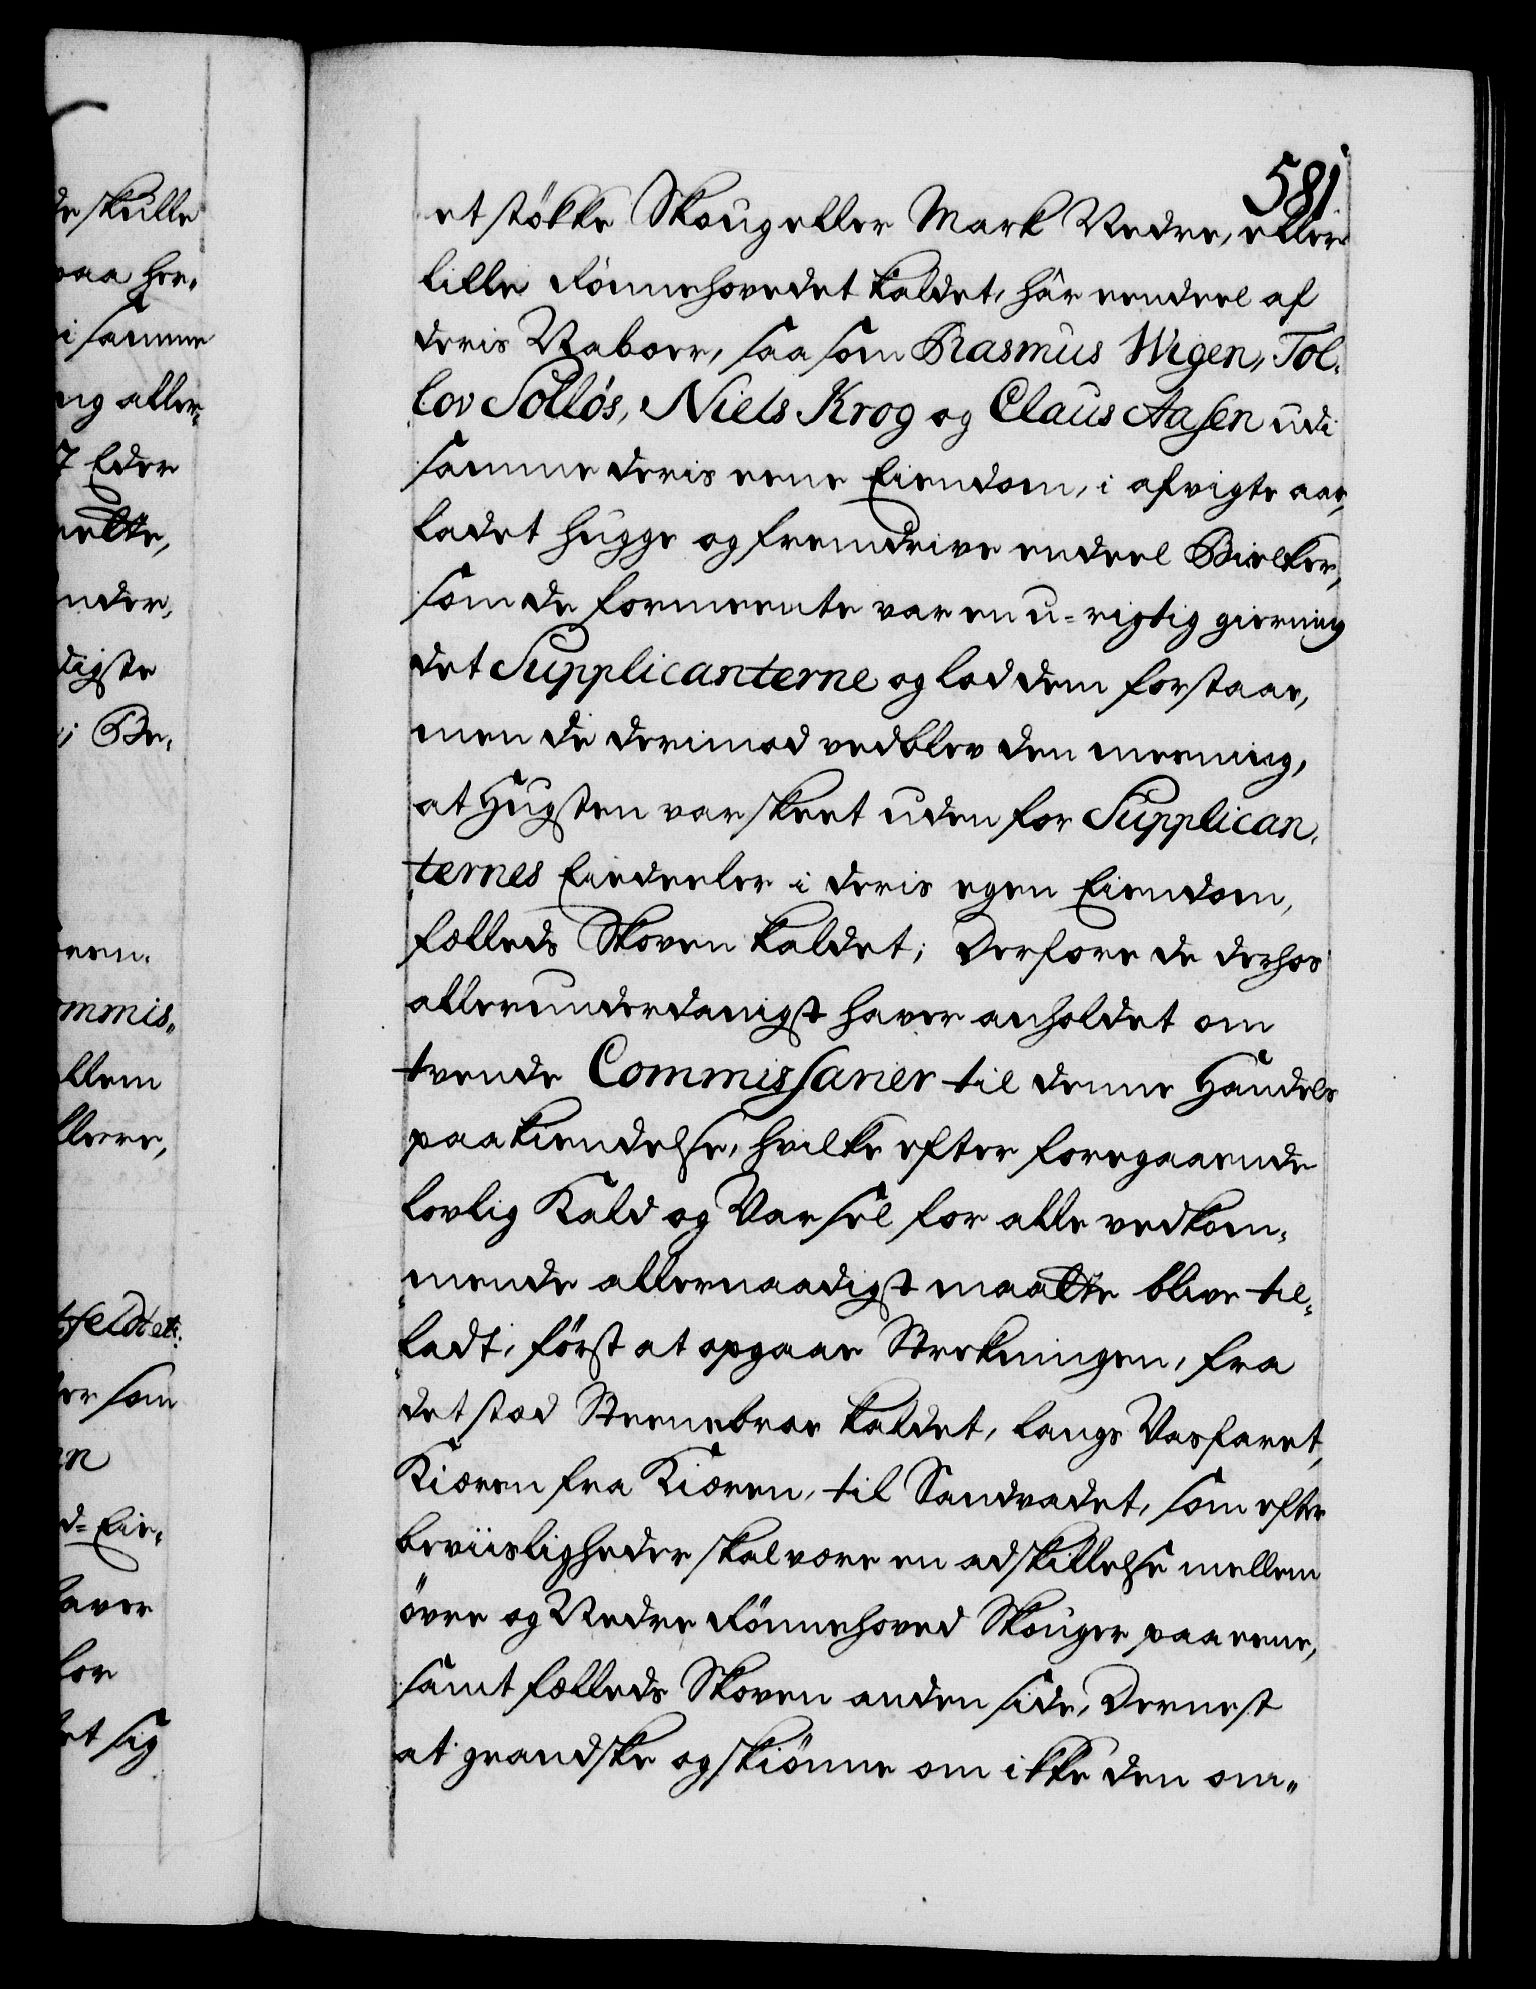 581
et stökke Skoug eller Mark Nedre, eller
lille Fönnehovedet kaldet, har eendeel af
deris Naboer, saa som Rasmus Wigen, Tol-
lov Sollös, Niels Krog og Claus Aasen udi
samme deris eene Eiendom, i afvigte aar,
ladet hugge og fremdrive endeel Bielker,
som de formeente var en u-rigtig gierning
det Supplicanterne og lod dem forstaae,
men de derimod vedblev den meening,
at Hugsten var skeet uden for Supplican-
ternes Eiedeeler i deris egen Eiendom,
fælleds Skoven kaldet; Derfore de derhos
allerunderdanigst haver anholdet om
tvende Commissarier til denne Handels
paakiendelse, hvilke efter foregaaende
lovlig Kald og Varsel for alle vedkom-
mende allernaadigst maatte blive til-
ladt, först at opgaae Strekningen, fra
det stæd Steenebroe kaldet, langs Vasfaret,
Kiæren fra Kiæren, til Sandvadet, som efter
beviisligheder skal være en adskillelse mellem
övre og Nedre Fönnehoved Skouger paa eene,
samt fælleds Skoven anden side, Dernest
at grandske og skiönne om ikke den om-
de skulle
paa her-
i samme
ng aller-
7 Eder
nder,
digste
i Be-
ommis-
llem
som
n
d-Eie-
haver
for
et sig